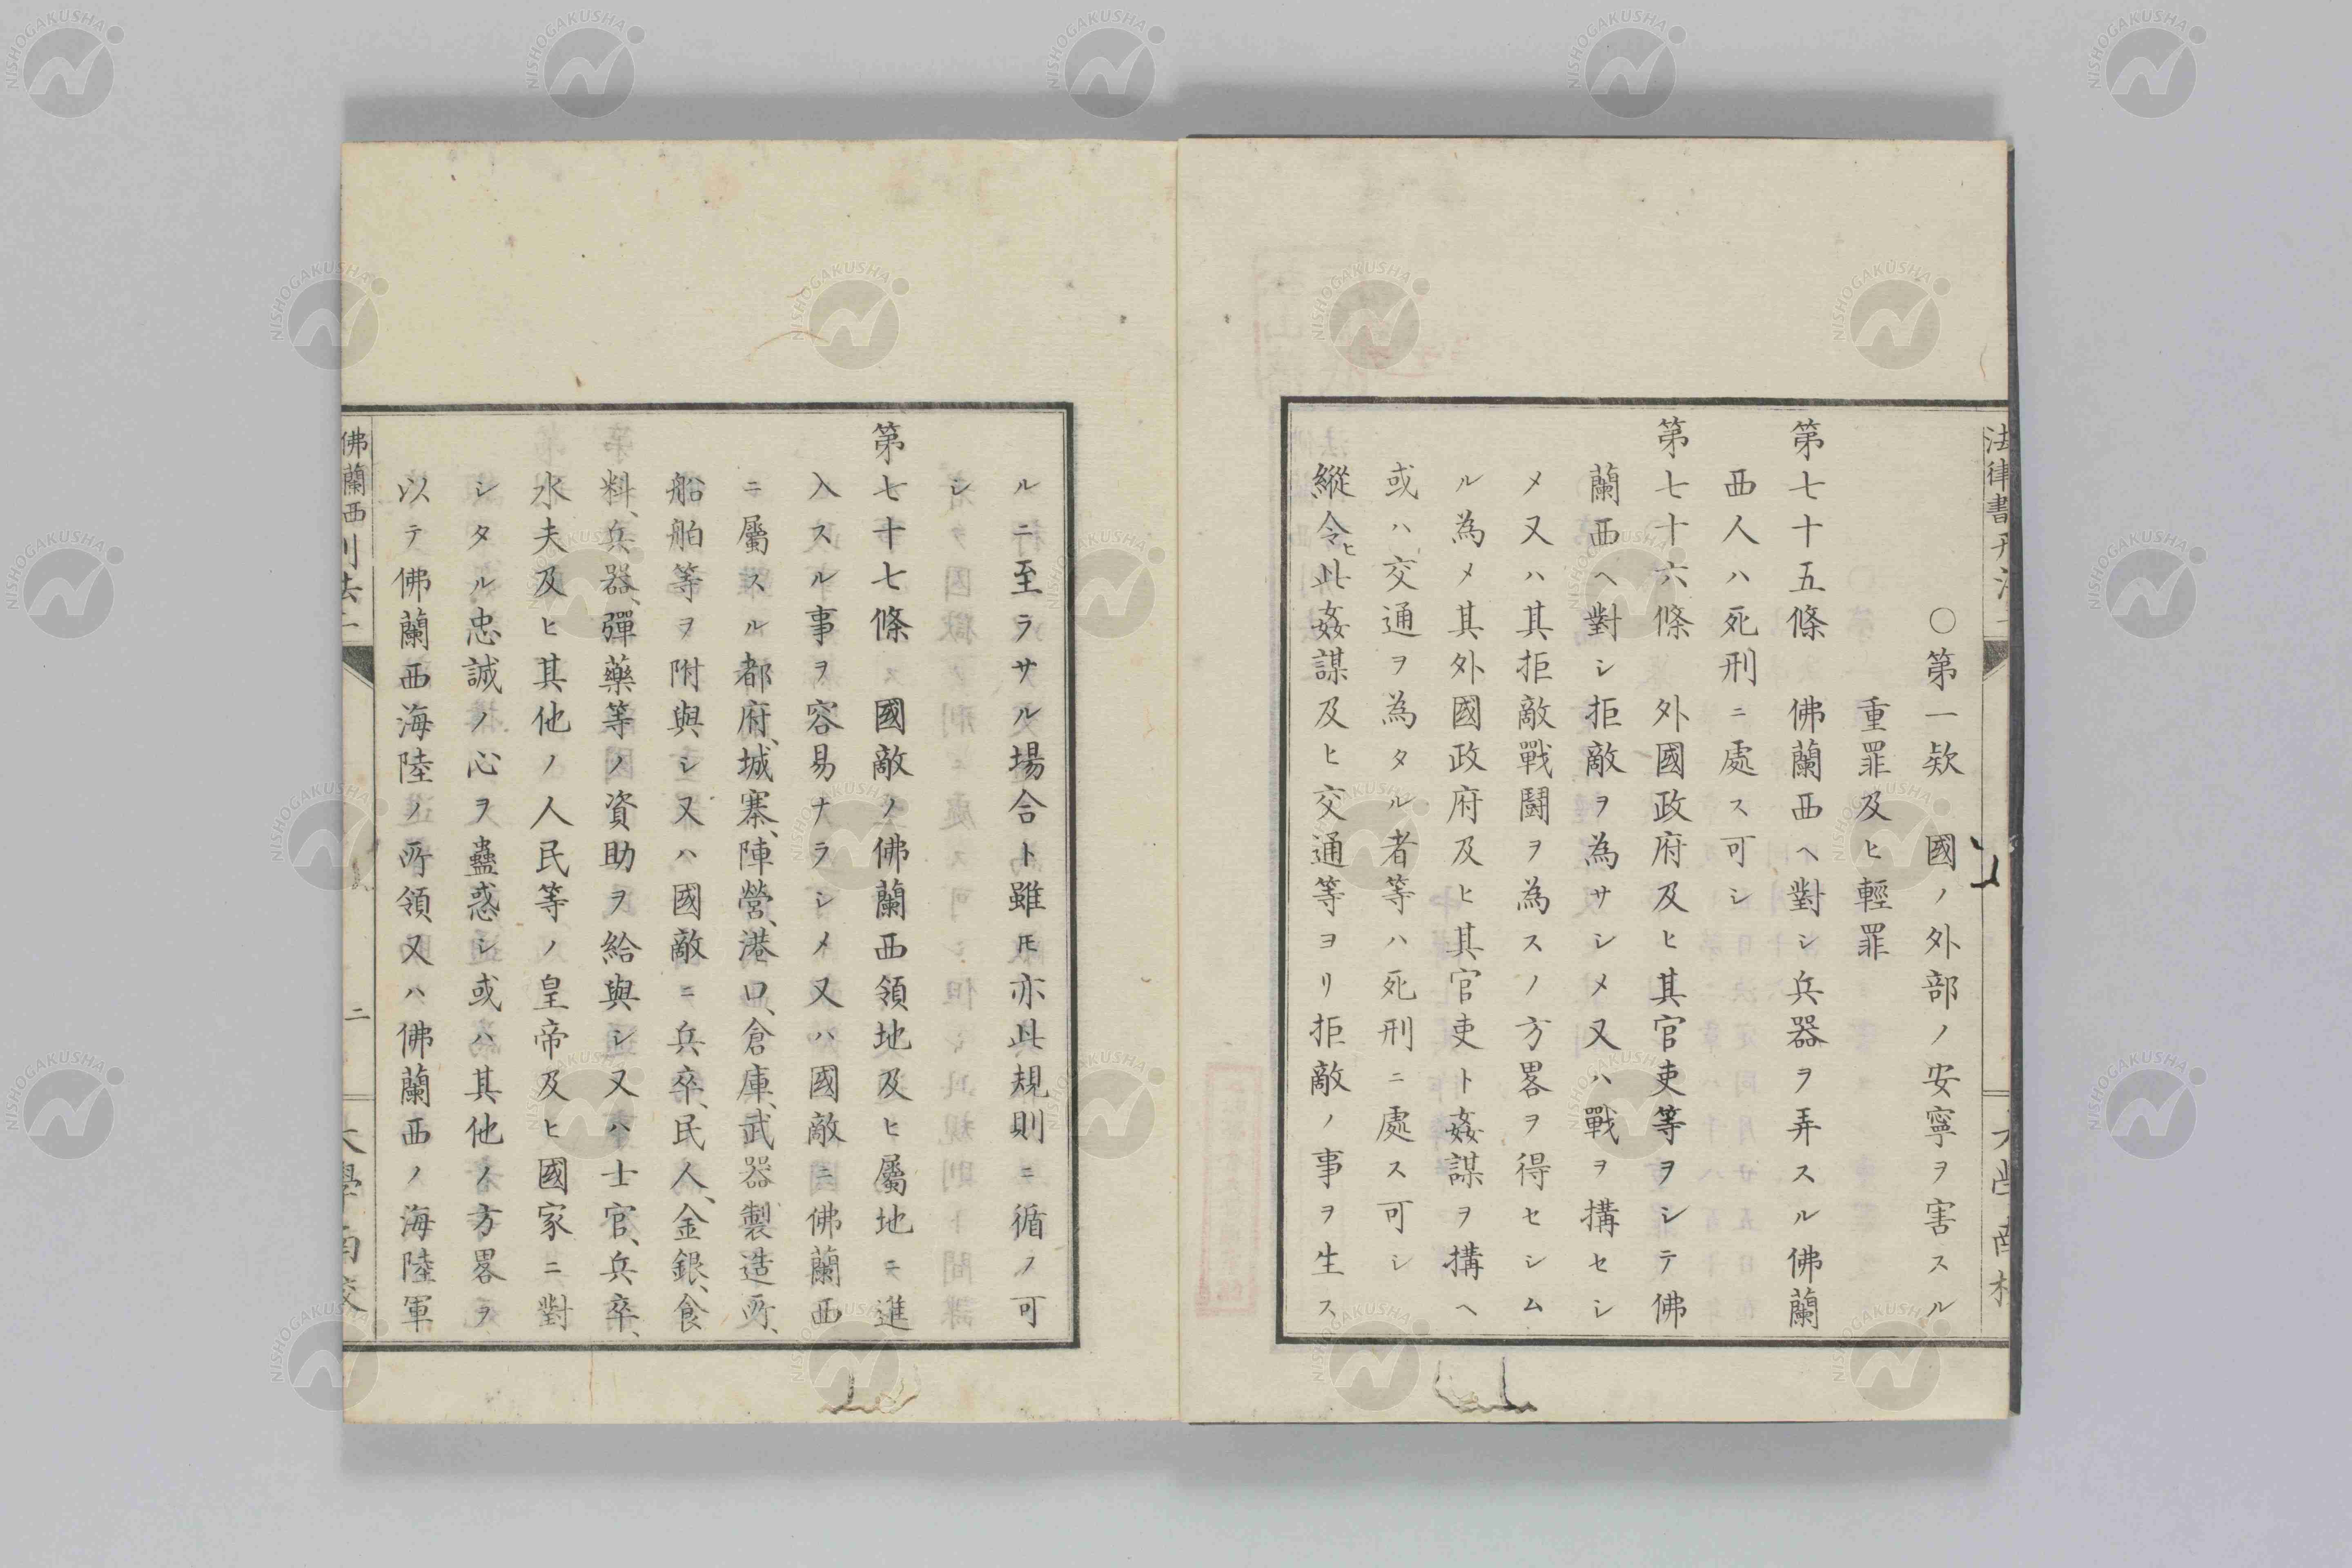 ○第一欵　國ノ外部ノ安寧ヲ害スル
重罪及ヒ輕罪
第七十五條　佛蘭西ヘ對シ兵器ヲ弄スル佛蘭
西人ハ死刑ニ處ス可シ
第七十六條　外國政府及ヒ其官吏等ヲシテ佛
蘭西ヘ對シ拒敵ヲ為サシメ又ハ戰ヲ搆セシ
メ又ハ其拒敵戰鬪ヲ為スノ方畧ヲ得セシム
ル為メ其外國政府及ヒ其官吏ト姦謀ヲ搆ヘ
或ハ交通ヲ為タル者等ハ死刑ニ處ス可シ
縱令ヒ此姦謀及ヒ交通等ヨリ拒敵ノ事ヲ生ス
ルニ至ラサル場合ト雖𪜈亦此規則ニ循ノ可
シ
第七十七條　國敵ノ佛蘭西領地及ヒ屬地ニ進
入スル事ヲ容易ナラシメ又ハ國敵ニ佛蘭西
ニ屬スル都府、城寨、陣營、港口、倉庫、武器製造所、
船舶等ヲ附與シ又ハ國敵ニ兵卒、民人、金銀、食
料、兵器、彈藥等ノ資助ヲ給與シ又ハ士官、兵卒、
水夫及ヒ其他ノ人民等ノ皇帝及ヒ國家ニ對
シタル忠誠ノ心ヲ蠱惑シ或ハ其他ノ方畧ヲ
以テ佛蘭西海陸ノ所領又ハ佛蘭西ノ海陸軍
佛蘭西刑法二
二
大學南校
NISHOGAKUSHA